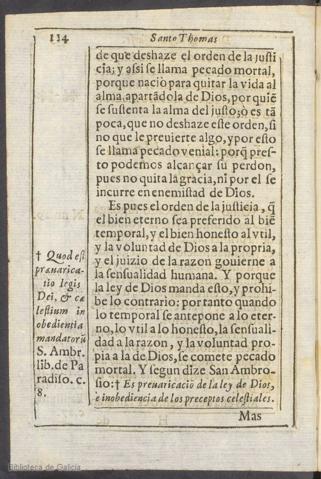 114
Santo Thomas
de que deshaze el orden de la justi
cia; y assi se llama pecado mortal,
porque naciò para quitar la vida al
alma, apartãdola de Dios, por quiẽ
se sustenta la alma del justo; ò es tã
poca, que no deshaze este orden, si
no que le preuierte algo, y por esto
se llama pecado venial: porq̃ pres-
to podemos alcançar su perdon,
pues no quita la gracia, ni por el se
incurre en enemistad de Dios.
Es pues el orden de la justicia, q̃
el bien eterno sea preferido al biẽ
temporal, y el bien honesto al vtil,
y la voluntad de Dios a la propria,
y el juizio de la razon gouierne a
la sensualidad humana. Y porque
la ley de Dios manda esto, y prohi-
be lo contrario: por tanto quando
lo temporal se antepone a lo eter-
no, lo vtil a lo honesto, la sensuali-
dad a la razon, y la voluntad pro-
pia a la de Dios, se comete pecado
mortal. Y segun dize San Ambro-
sio: † Es preuaricaciõ de la ley de Dios,
e inobediencia de los preceptos celestiales.
Mas
† Quod est
præuarica-
tio legis
Dei, & cæ
lestium in
obedientia
mandatorũ
S. Ambr.
lib. de Pa
radiso. c.
8.
Biblioteca de Galicia